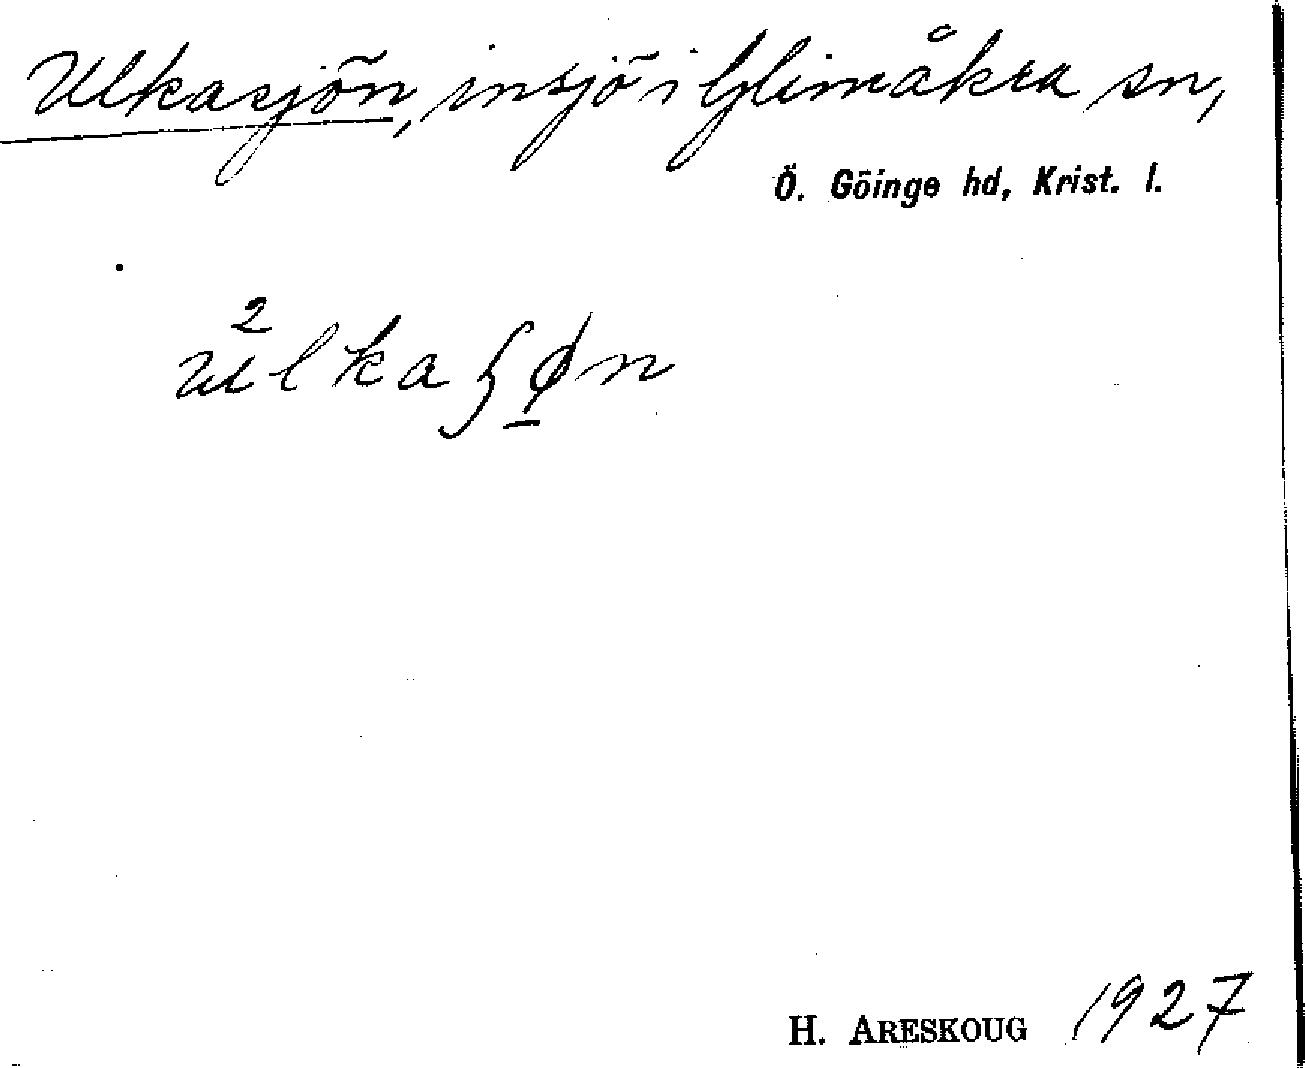 Ulkasjön, insjö i Glimåkra sn,
Ö. Göinge hd, Krist. l.
H. ARESKOUG 1927